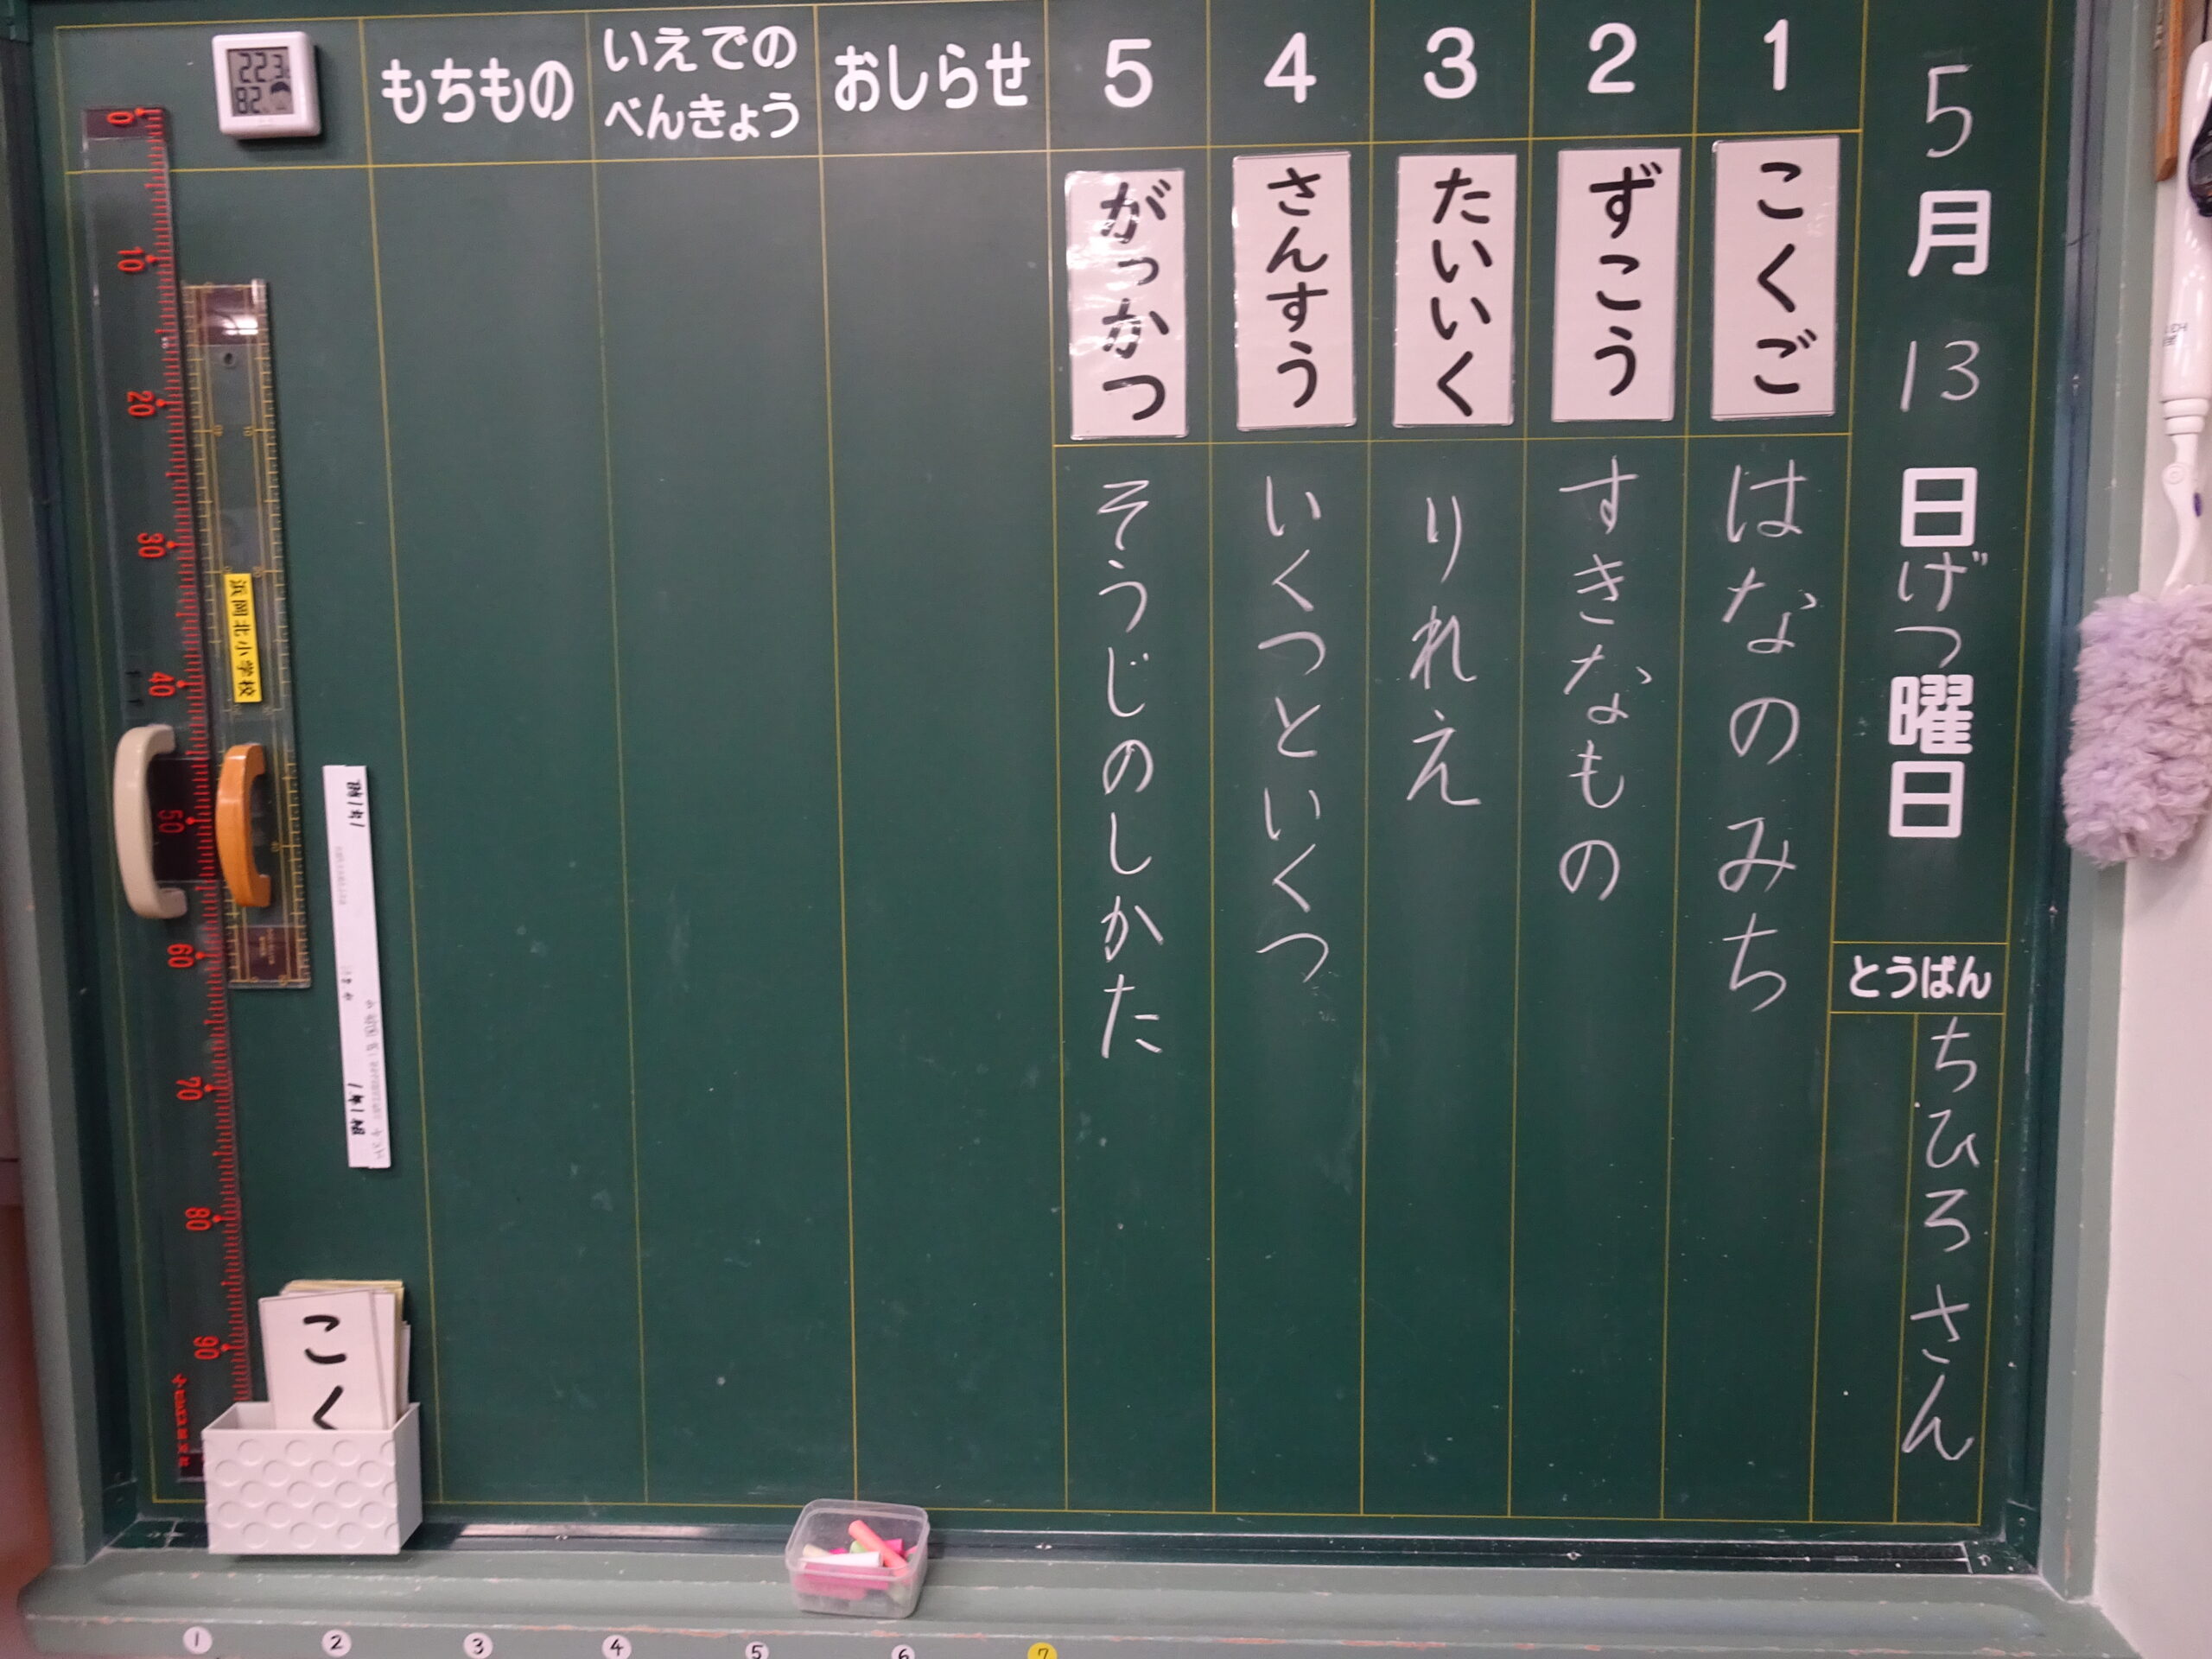 5月13日げつ曜日
とうばん
ちひろさん
1
こくご
はなのみち
2
ずこう
すきなもの
3
たいいく
りれえ
4
さんすう
いくつといくつ
5
がっかつ
そうじのしかた
おしらせ
いえでの
べんきょう
もちもの
22.3
82
0
10
20
30
40
50
60
70
80
90
浜岡北小学校
1年1組
こく
1
2
3
4
5
6
7